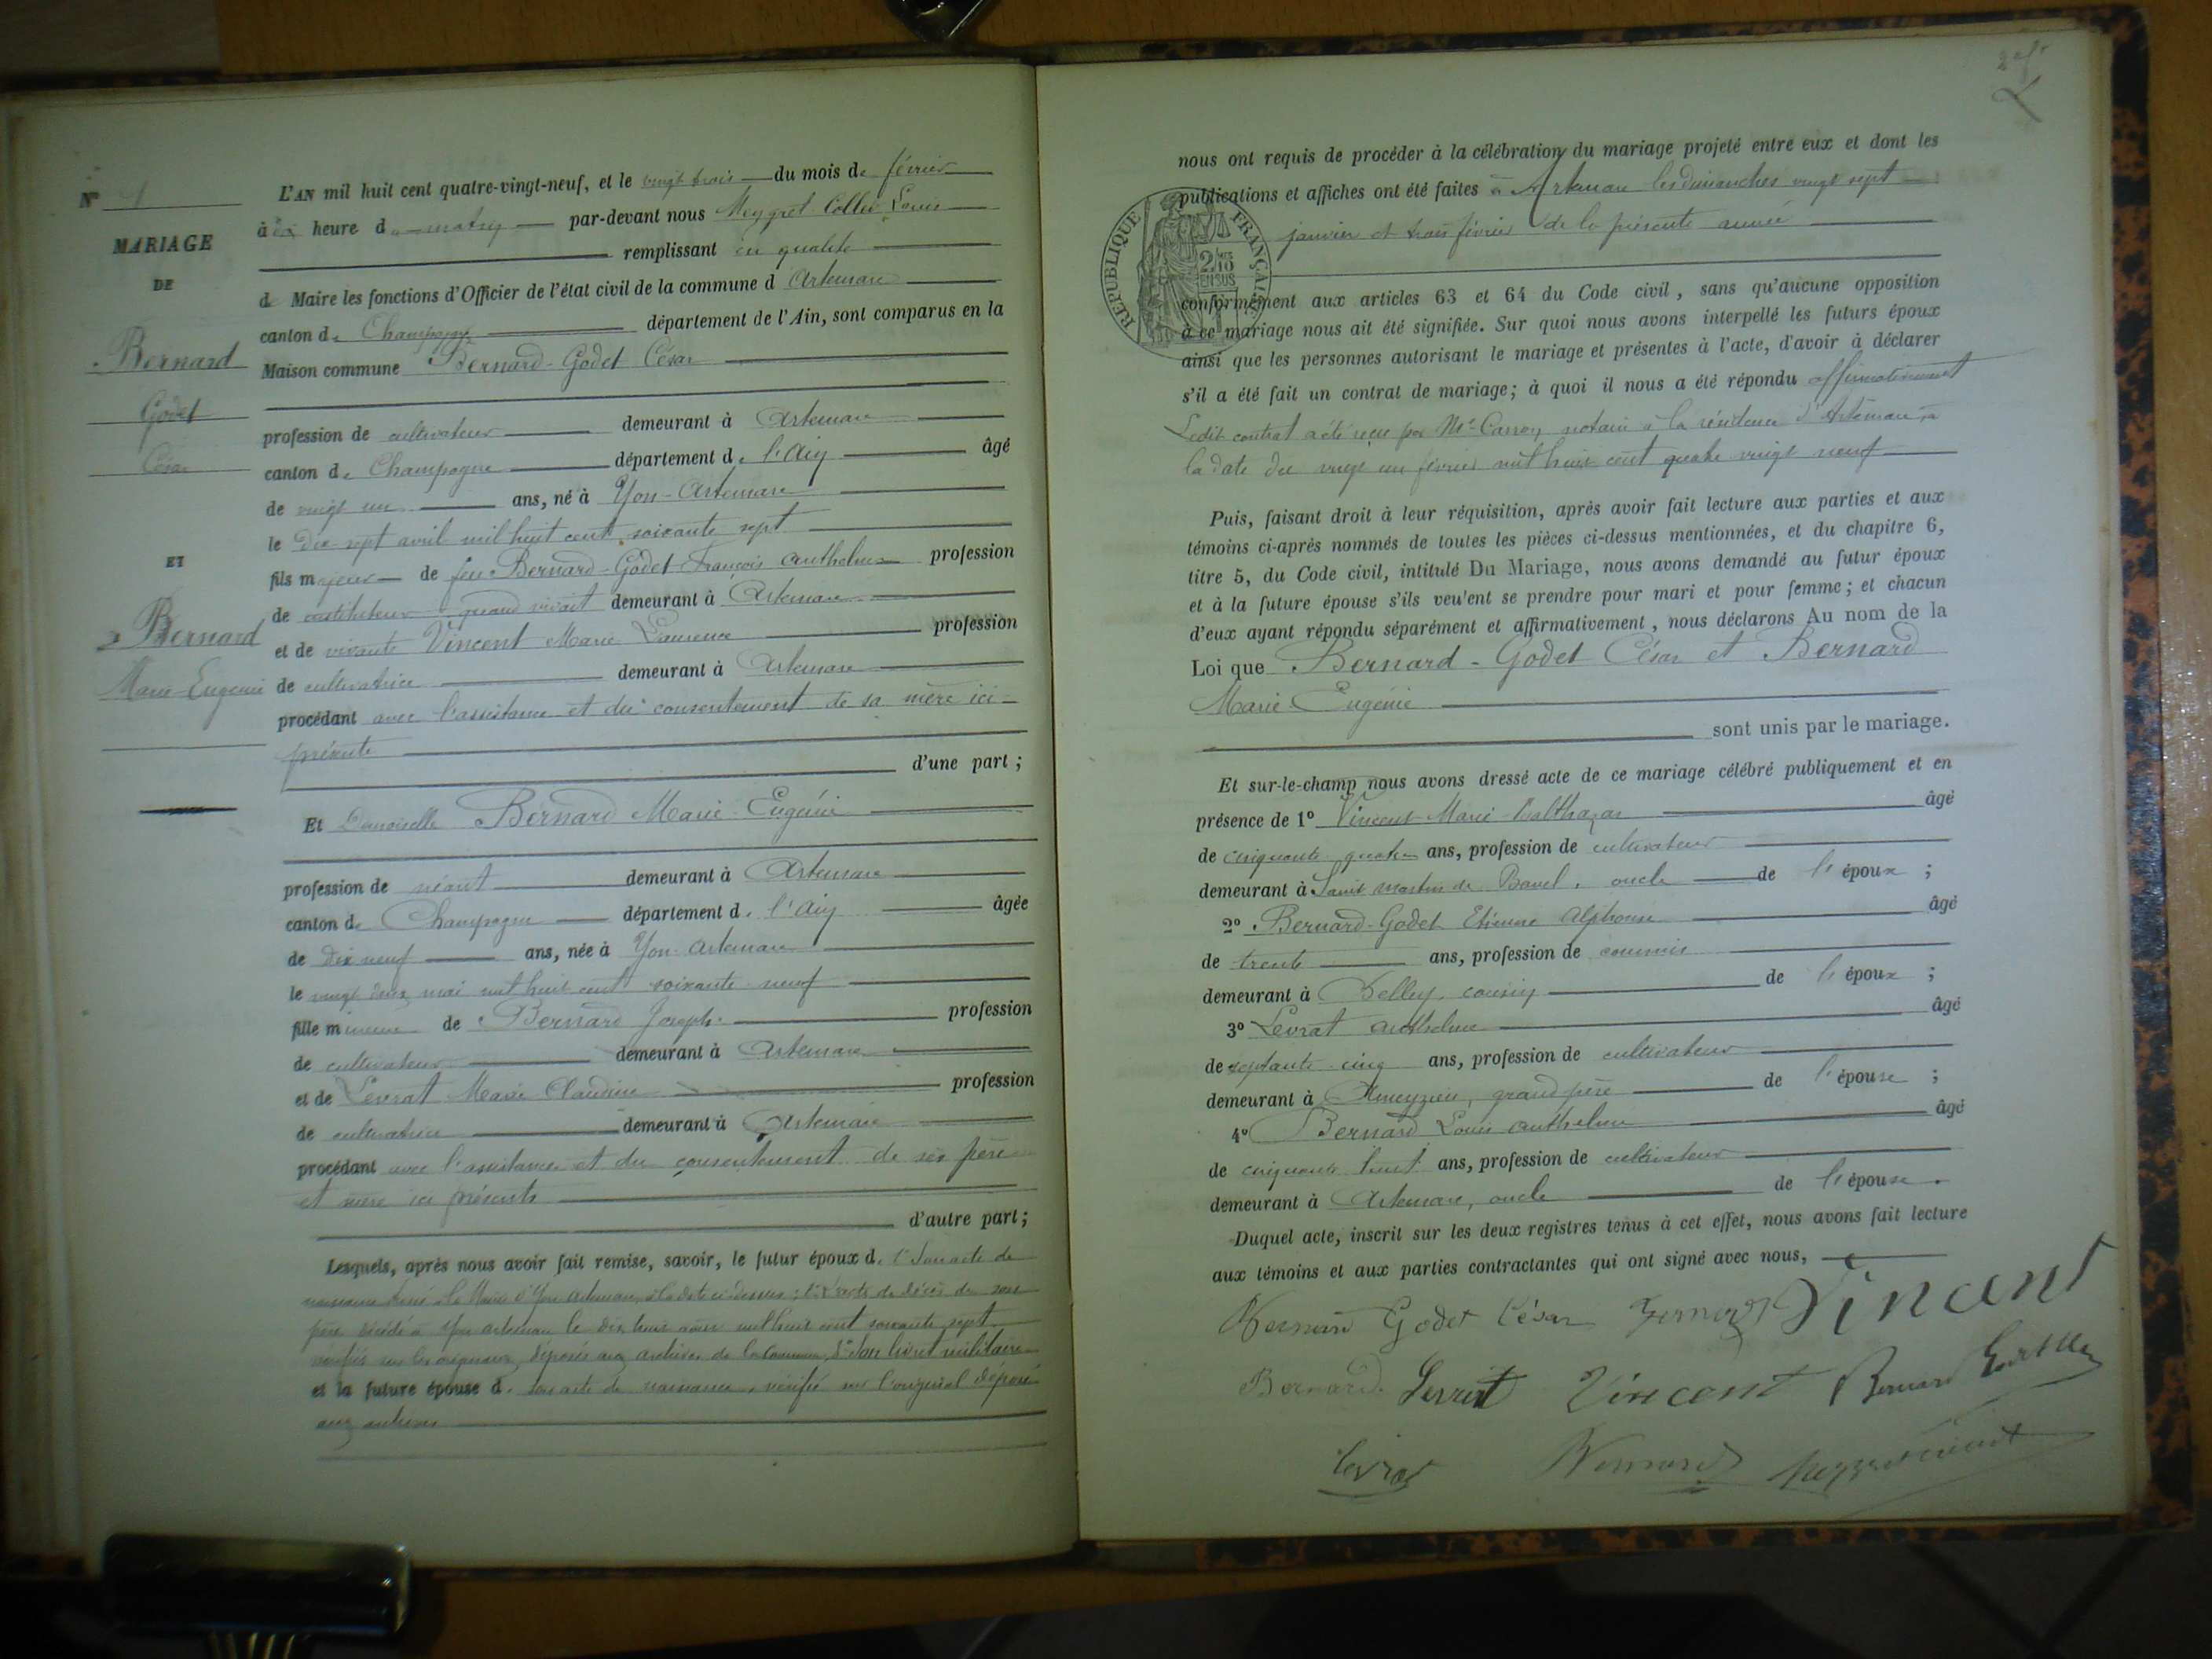 N° 1
MARIAGE
DE
Bernard
Godet
César
ET
Bernard
Marie Eugénie
L'AN mil huit cent quatre-vingt-neuf, et le vingt trois du mois de février
à dix heure du matin par-devant nous Meygret Collet Louis
remplissant en qualité
de Maire les fonctions d'Officier de l'état civil de la commune d'Artemare
canton de Champagne département de l'Ain, sont comparus en la
Maison commune Bernard-Godet César
profession de cultivateur demeurant à Artemare
canton de Champagne département de l'Ain âgé
de vingt un ans, né à Yon-Artemare
le dix sept avril mil huit cent soixante sept
fils majeur de feu Bernard-Godet François Anthelme profession
de instituteur quand vivait demeurant à Artemare
et de vivante Vincent Marie Laurence profession
de cultivatrice demeurant à Artemare
procédant avec l'assistance et du consentement de sa mère ici-
présente
d'une part ;
Et Demoiselle Bernard Marie-Eugénie
profession de néant demeurant à Artemare
canton de Champagne département de l'Ain âgée
de dix neuf ans, née à Yon-Artemare
le vingt deux mai mil huit cent soixante neuf
fille mineure de Bernard Joseph profession
de cultivateur demeurant à Artemare
et de Levrat Marie Claudine profession
de cultivatrice demeurant à Artemare
procédant avec l'assistance et du consentement de ses père
et mère ici présents
d'autre part ;
Lesquels, après nous avoir fait remise, savoir, le futur époux de 1° Son acte de
naissance dressé à la Mairie d'Yon Artemare, à la date ci-dessus ; 2° L'acte de décès de son
père décédé à Yon Artemare le dix huit mil huit cent soixante sept
vérifiés sur les originaux déposés aux archives de la Commune, 3° Son livret militaire
et la future épouse de son acte de naissance, vérifié sur l'original déposé
aux archives
nous ont requis de procéder à la célébration du mariage projeté entre eux et dont les
publications et affiches ont été faites à Artemare les dimanches vingt sept
janvier et trois février de la présente année
RÉPUBLIQUE FRANÇAISE
conformément aux articles 63 et 64 du Code civil, sans qu'aucune opposition
à ce mariage nous ait été signifiée. Sur quoi nous avons interpellé les futurs époux
ainsi que les personnes autorisant le mariage et présentes à l'acte, d'avoir à déclarer
s'il a été fait un contrat de mariage; à quoi il nous a été répondu affirmativement
Ledit contrat a été reçu par Me notaire à la résidence d'Artemare, à
la date du vingt un février mil huit cent quatre vingt neuf
Puis, faisant droit à leur réquisition, après avoir fait lecture aux parties et aux
témoins ci-après nommés de toutes les pièces ci-dessus mentionnées, et du chapitre 6,
titre 5, du Code civil, intitulé Du Mariage, nous avons demandé au futur époux
et à la future épouse s'ils veulent se prendre pour mari et pour femme; et chacun
d'eux ayant répondu séparément et affirmativement, nous déclarons Au nom de la
Loi que Bernard-Godet César et Bernard
Marie-Eugénie
sont unis par le mariage.
Et sur-le-champ nous avons dressé acte de ce mariage célébré publiquement et en
présence de 1° Vincent Marie Balthazar âgé
de cinquante quatre ans, profession de cultivateur
demeurant à Saint Martin de Bavel, oncle de l'époux ;
2° Bernard-Godet Etienne Alphonse âgé
de trente ans, profession de commis
demeurant à Belley, cousin de l'époux ;
3° Levrat Anthelme âgé
de septante cinq ans, profession de cultivateur
demeurant à Ameyzieu, grand père de l'épouse ;
4° Bernard Louis Anthelme âgé
de cinquante huit ans, profession de cultivateur
demeurant à Artemare, oncle de l'épouse.
Duquel acte, inscrit sur les deux registres tenus à cet effet, nous avons fait lecture
aux témoins et aux parties contractantes qui ont signé avec nous,
Bernard Godet César Bernard Vincent
Bernard Levrat Vincent Bernard
Levrat Bernard